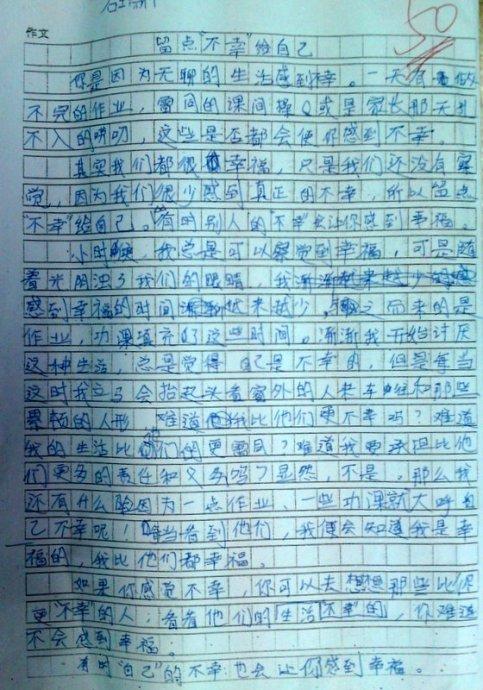 作文
50
留点"不幸"给自己
你是因为无聊的生活感到不幸。一天有做
不完的作业，雷同的课间操或是家长那无孔
不入的唠叨，这些是否都会使你感到不幸。
其实我们都很幸福，只是我们还没有察
觉，因为我们很少感到真正的不幸，所以留点
"不幸"给自己。有时别人的"不幸"会让你感到幸福。
小时候，我总是可以察觉到幸福，可是随
着光阴浊了我们的眼睛，我
感到幸福的时间越来越少，之而来的是
作业，功课填充了这些时间。渐渐我开始讨厌
这种生活，总是觉得自己是不幸的，但是每当
这时我立马会抬起头看窗外的人来车往和那些
累顿的人形，难道我比他们更不幸吗？难道
我的生活比他们的更雷同？难道我要承担比他
们更多的责任和义务吗？显然，不是。那么我
还有什么脸因为一点作业、一些功课就大呼自
己不幸呢，每当看到他们，我便会知道我是幸
福的，我比他们都幸福。
如果你感觉不幸，你可以去想想那些比你
更"不幸"的人，看看他们的生活"不幸"的，你难道
不会感到幸福。
有时"自己"的不幸也会让你感到幸福。